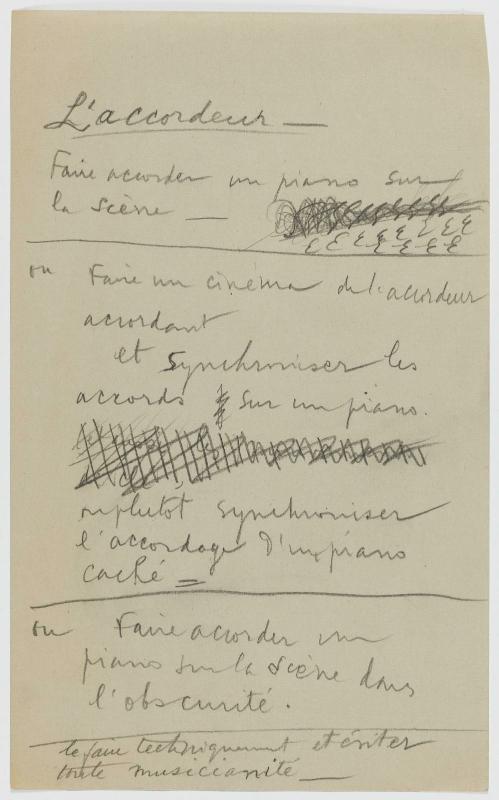 L'accordeur —
Faire accorder un piano sur
la scène —
ou Faire un cinéma de l'accordeur
accordant
et synchroniser les
accords sur un piano.
ou plutot synchroniser
l'accordage d'un piano
caché =
ou Faire accorder un
piano sur la scène dans
l'obscurité.
le faire techniquement et éviter
toute musicianité —